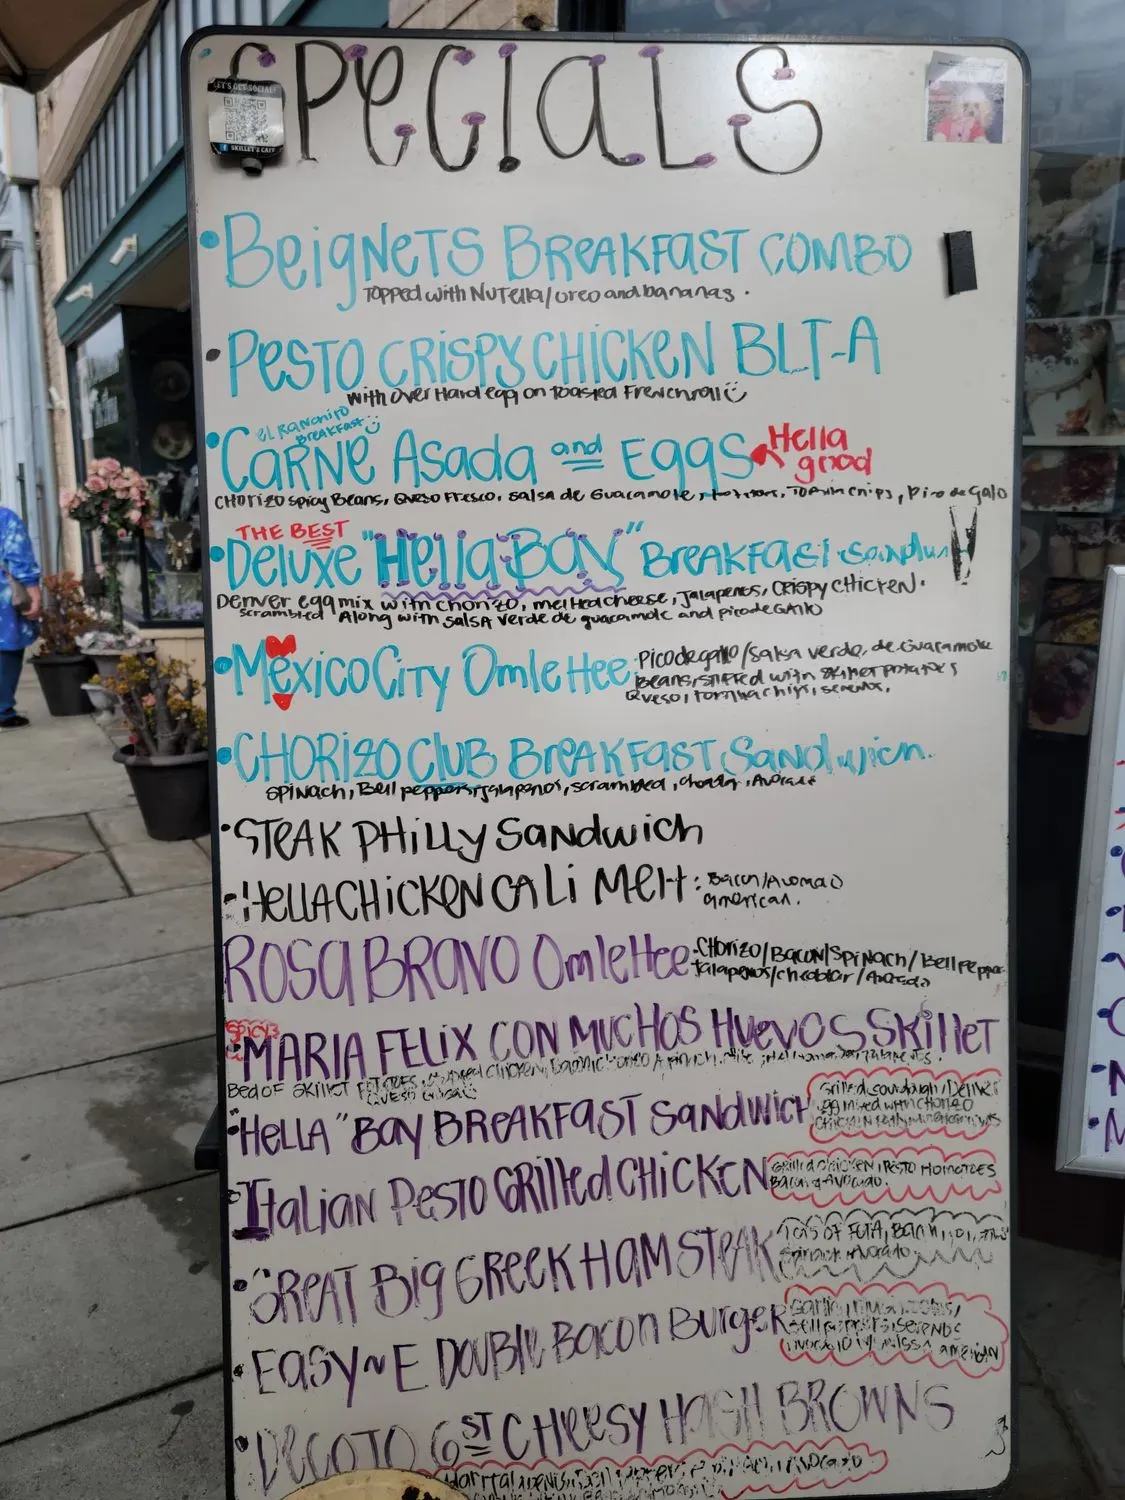 SPECIALS
LET'S GET SOCIAL!
SKILLETZ CAFE
• BeigNeTS BREAKFaST COMBO
Topped with NuTella/oreo and bananas.
• PeSTO CRISPY CHICKEN BLT-A
with Over Hard egg on Toasted French roll
el Ranchito
Breakfast
• CARNE Asada and Eggs
Hella
good
CHORIZO SPICY Beans, Queso Fresco, Salsa de Guacamole, Tortilla Chips, Pico de Gallo
THE BEST
• Deluxe "Hella BAY" BREAKFAST Sandwich
Denver egg mix with chorizo, melted cheese, Jalapenos, CRISPY CHICKEN.
scrambled Along with salsa verde de guacamole and pico de Gallo
• MexicoCity OmleHee: Pico de gallo/salsa verde, de Guacamole
Beans, stuffed with skillet potatoes
Queso, Tortilla chips,
• CHORIZO CLUB BREAKFAST Sandwich.
SPINACH, Bell peppers, jalapenos, scrambled, chedda, Avocado
• STEAK PHILLY Sandwich
• HELLA CHICKEN CALI MElt: Bacon/Avocado
american.
ROSA BRAVO OmleHee: CHORIZO/BACON/SPINACH/Bell Pepper
Jalapenos/cheddar/Avocado
SPICY
• MARIA FELIX CON MUCHOS HuevOS SKilleT
Bed OF SKillet
QUESO
• "HELLA" BAY BREAKFAST SANDWICH
Grilled sourdough/Denver
egg mixed with chorizo
• Italian PesTO GRilled CHICKEN
Grilled chicken, Pesto
Bacon & Avocado.
• GREAT BIG GREEK HAM STEAK
of FETA,
Spinach Avocado
• EASY~E DOUBLE Bacon BurgeR
bell peppers,
american
• DECOTO 6ST CHeesy HASH BROWNS
Avocado